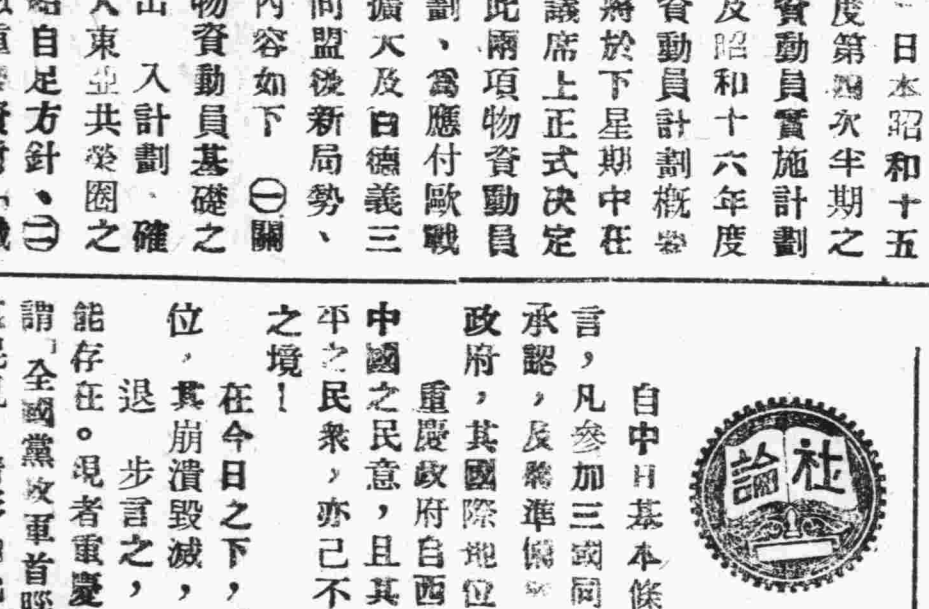 日本昭和十五
度第四次半期之
資動員實施計劃
及昭和十六年度
資動員計劃概要
將於下星期中在
議席上正式決定
此兩項物資動員
劃、為應付歐戰
擴大及日德義三
同盟後新局勢、
內容如下 ㊀關
物資動員基礎之
出 入計劃、確
大東亞共榮圈之
自足方針、㊁
社論
自中日基本條
言，凡參加三國同
承認，及將準備
政府，其國際地位
重慶政府自西
中國之民意，且其
平之民衆，亦已不
之境！
在今日之下，
位，其崩潰毀滅，
退 步言之，
能存在。現者重慶
謂「全國黨政軍首腦